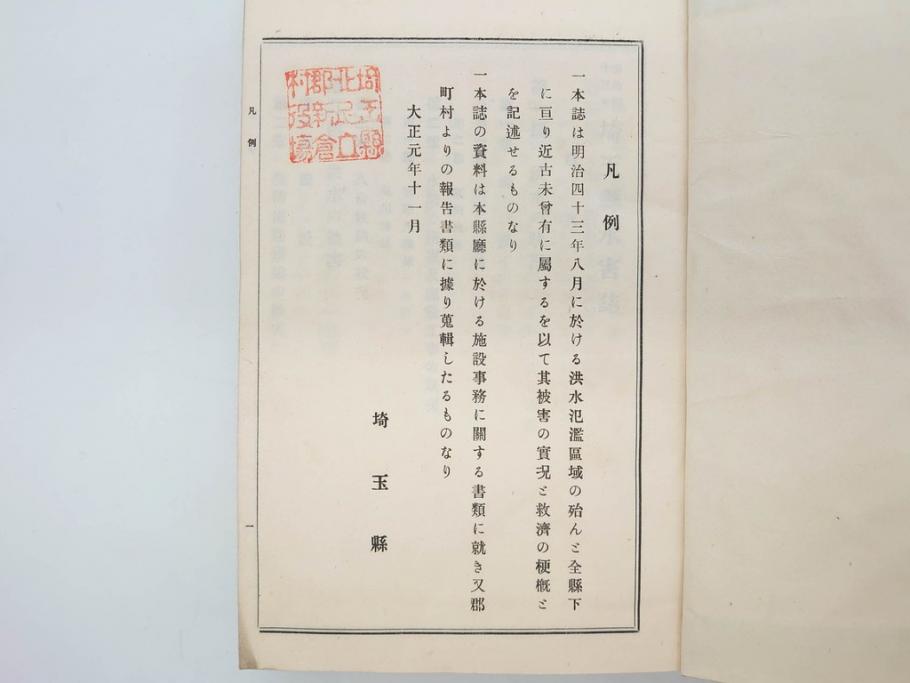 凡例
一本誌は明治四十三年八月に於ける洪水氾濫區域の殆んど全縣下
に亘り近古未曾有に屬するを以て其被害の實況と救濟の梗槪と
を記述せるものなり
一本誌の資料は本縣廳に於ける施設事務に關する書類に就き又郡
町村よりの報告書類に據り蒐輯したるものなり
大正元年十一月
埼玉縣
埼玉縣
北足立
郡新倉
村役場
凡例
一